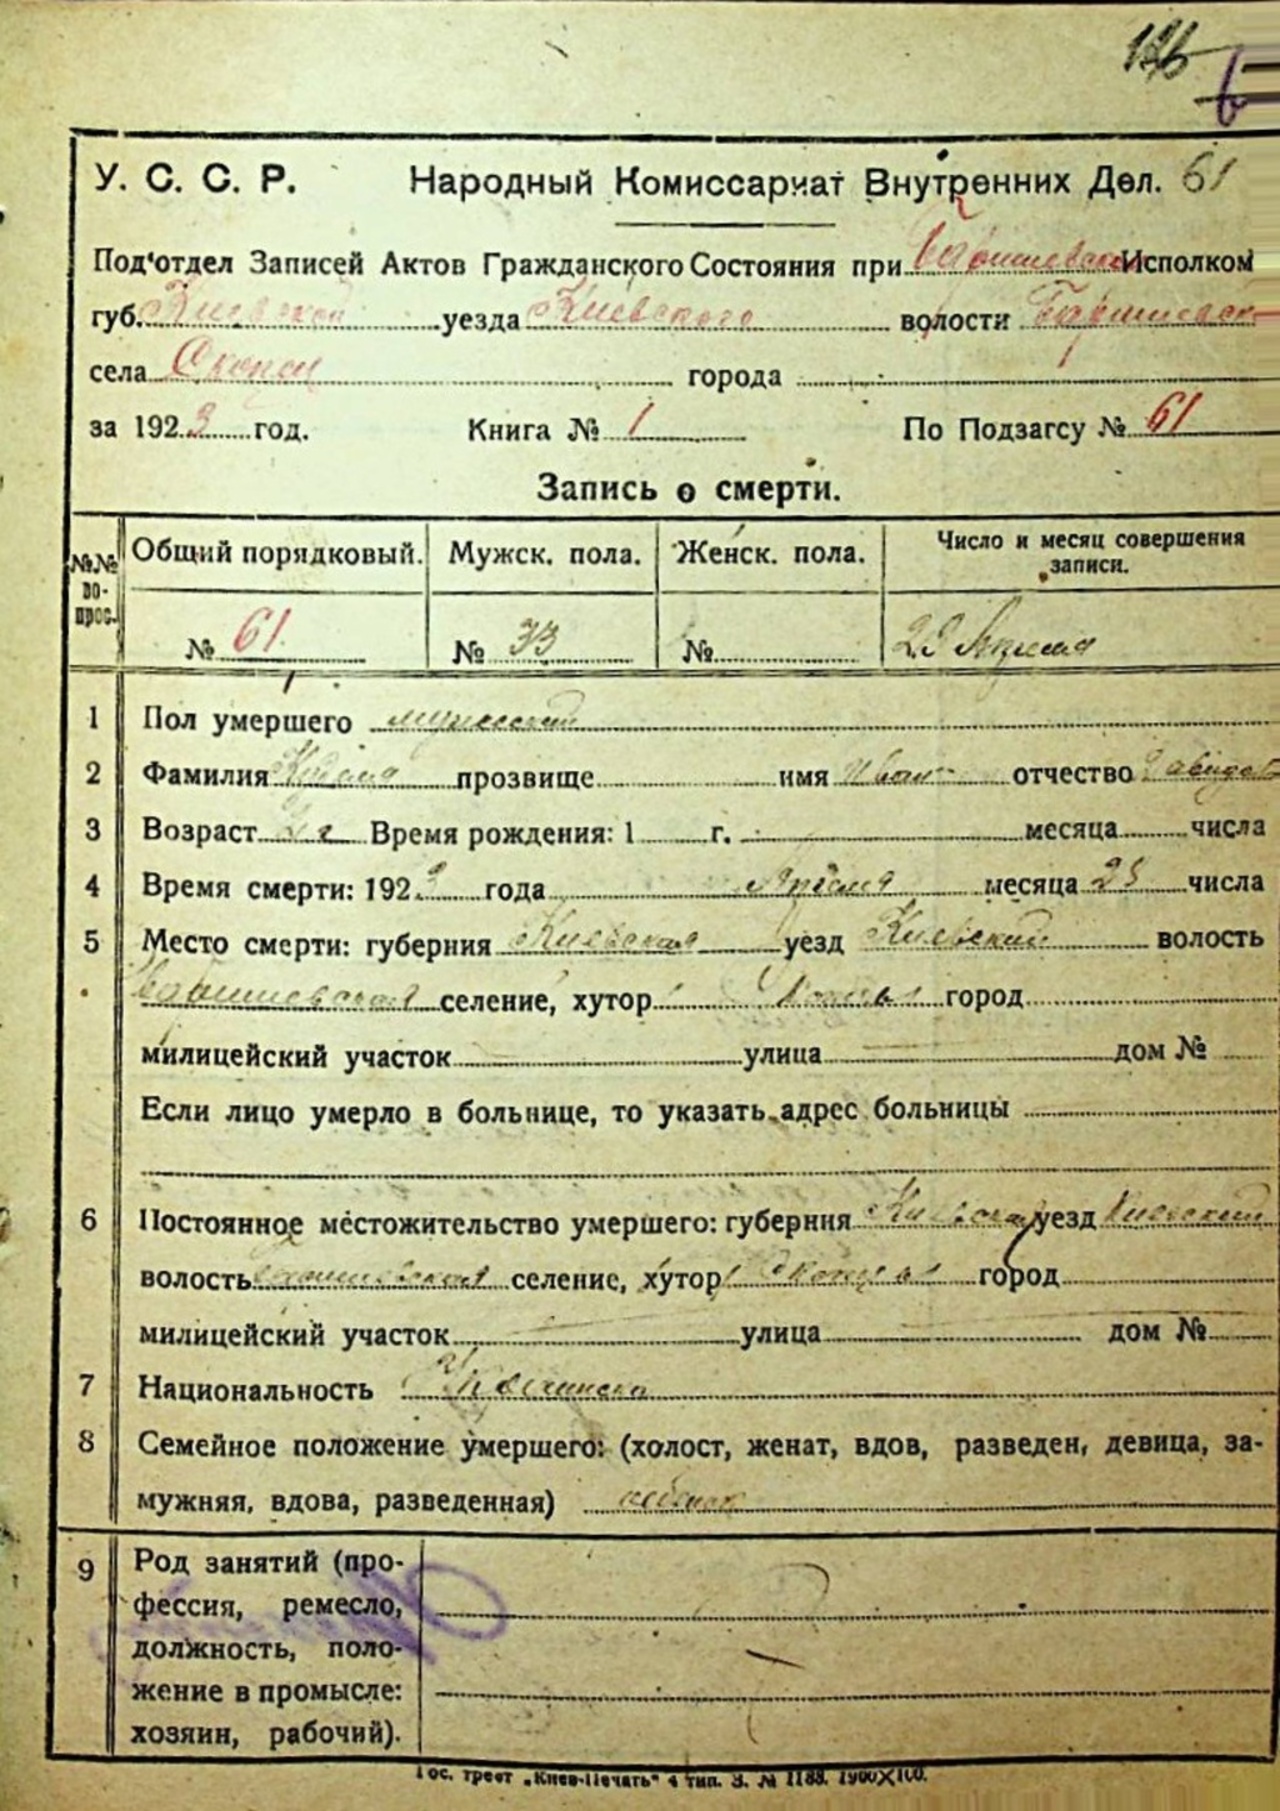 126 6
У. С. С. Р. Народный Комиссариат Внутренних Дел. 61
Под'отдел Записей Актов Гражданского Состояния при Исполком
губ. Киевской уезда Киевского волости
села города
за 1923 год. Книга № 1 По Подзагсу № 61
Запись о смерти.
№№ вопрос. Общий порядковый. Мужск. пола. Женск. пола. Число и месяц совершения записи.
№ 61 № 33 № Апреля
1 Пол умершего мужеский
2 Фамилия прозвище имя Иван отчество
3 Возраст 2 г Время рождения: 1 г. месяца числа
4 Время смерти: 1923 года Апреля месяца 25 числа
5 Место смерти: губерния Киевская уезд Киевский волость
селение, хутор город
милицейский участок улица дом №
Если лицо умерло в больнице, то указать адрес больницы
6 Постоянное местожительство умершего: губерния Киевская уезд Киевский
волость селение, хутор город
милицейский участок улица дом №
7 Национальность
8 Семейное положение умершего: (холост, женат, вдов, разведен, девица, за-
мужняя, вдова, разведенная)
9 Род занятий (про-
фессия, ремесло,
должность, поло-
жение в промысле:
хозяин, рабочий).
Гос. трест „Киев-Печать" 4 тип. З. № 1188. 1900X100.